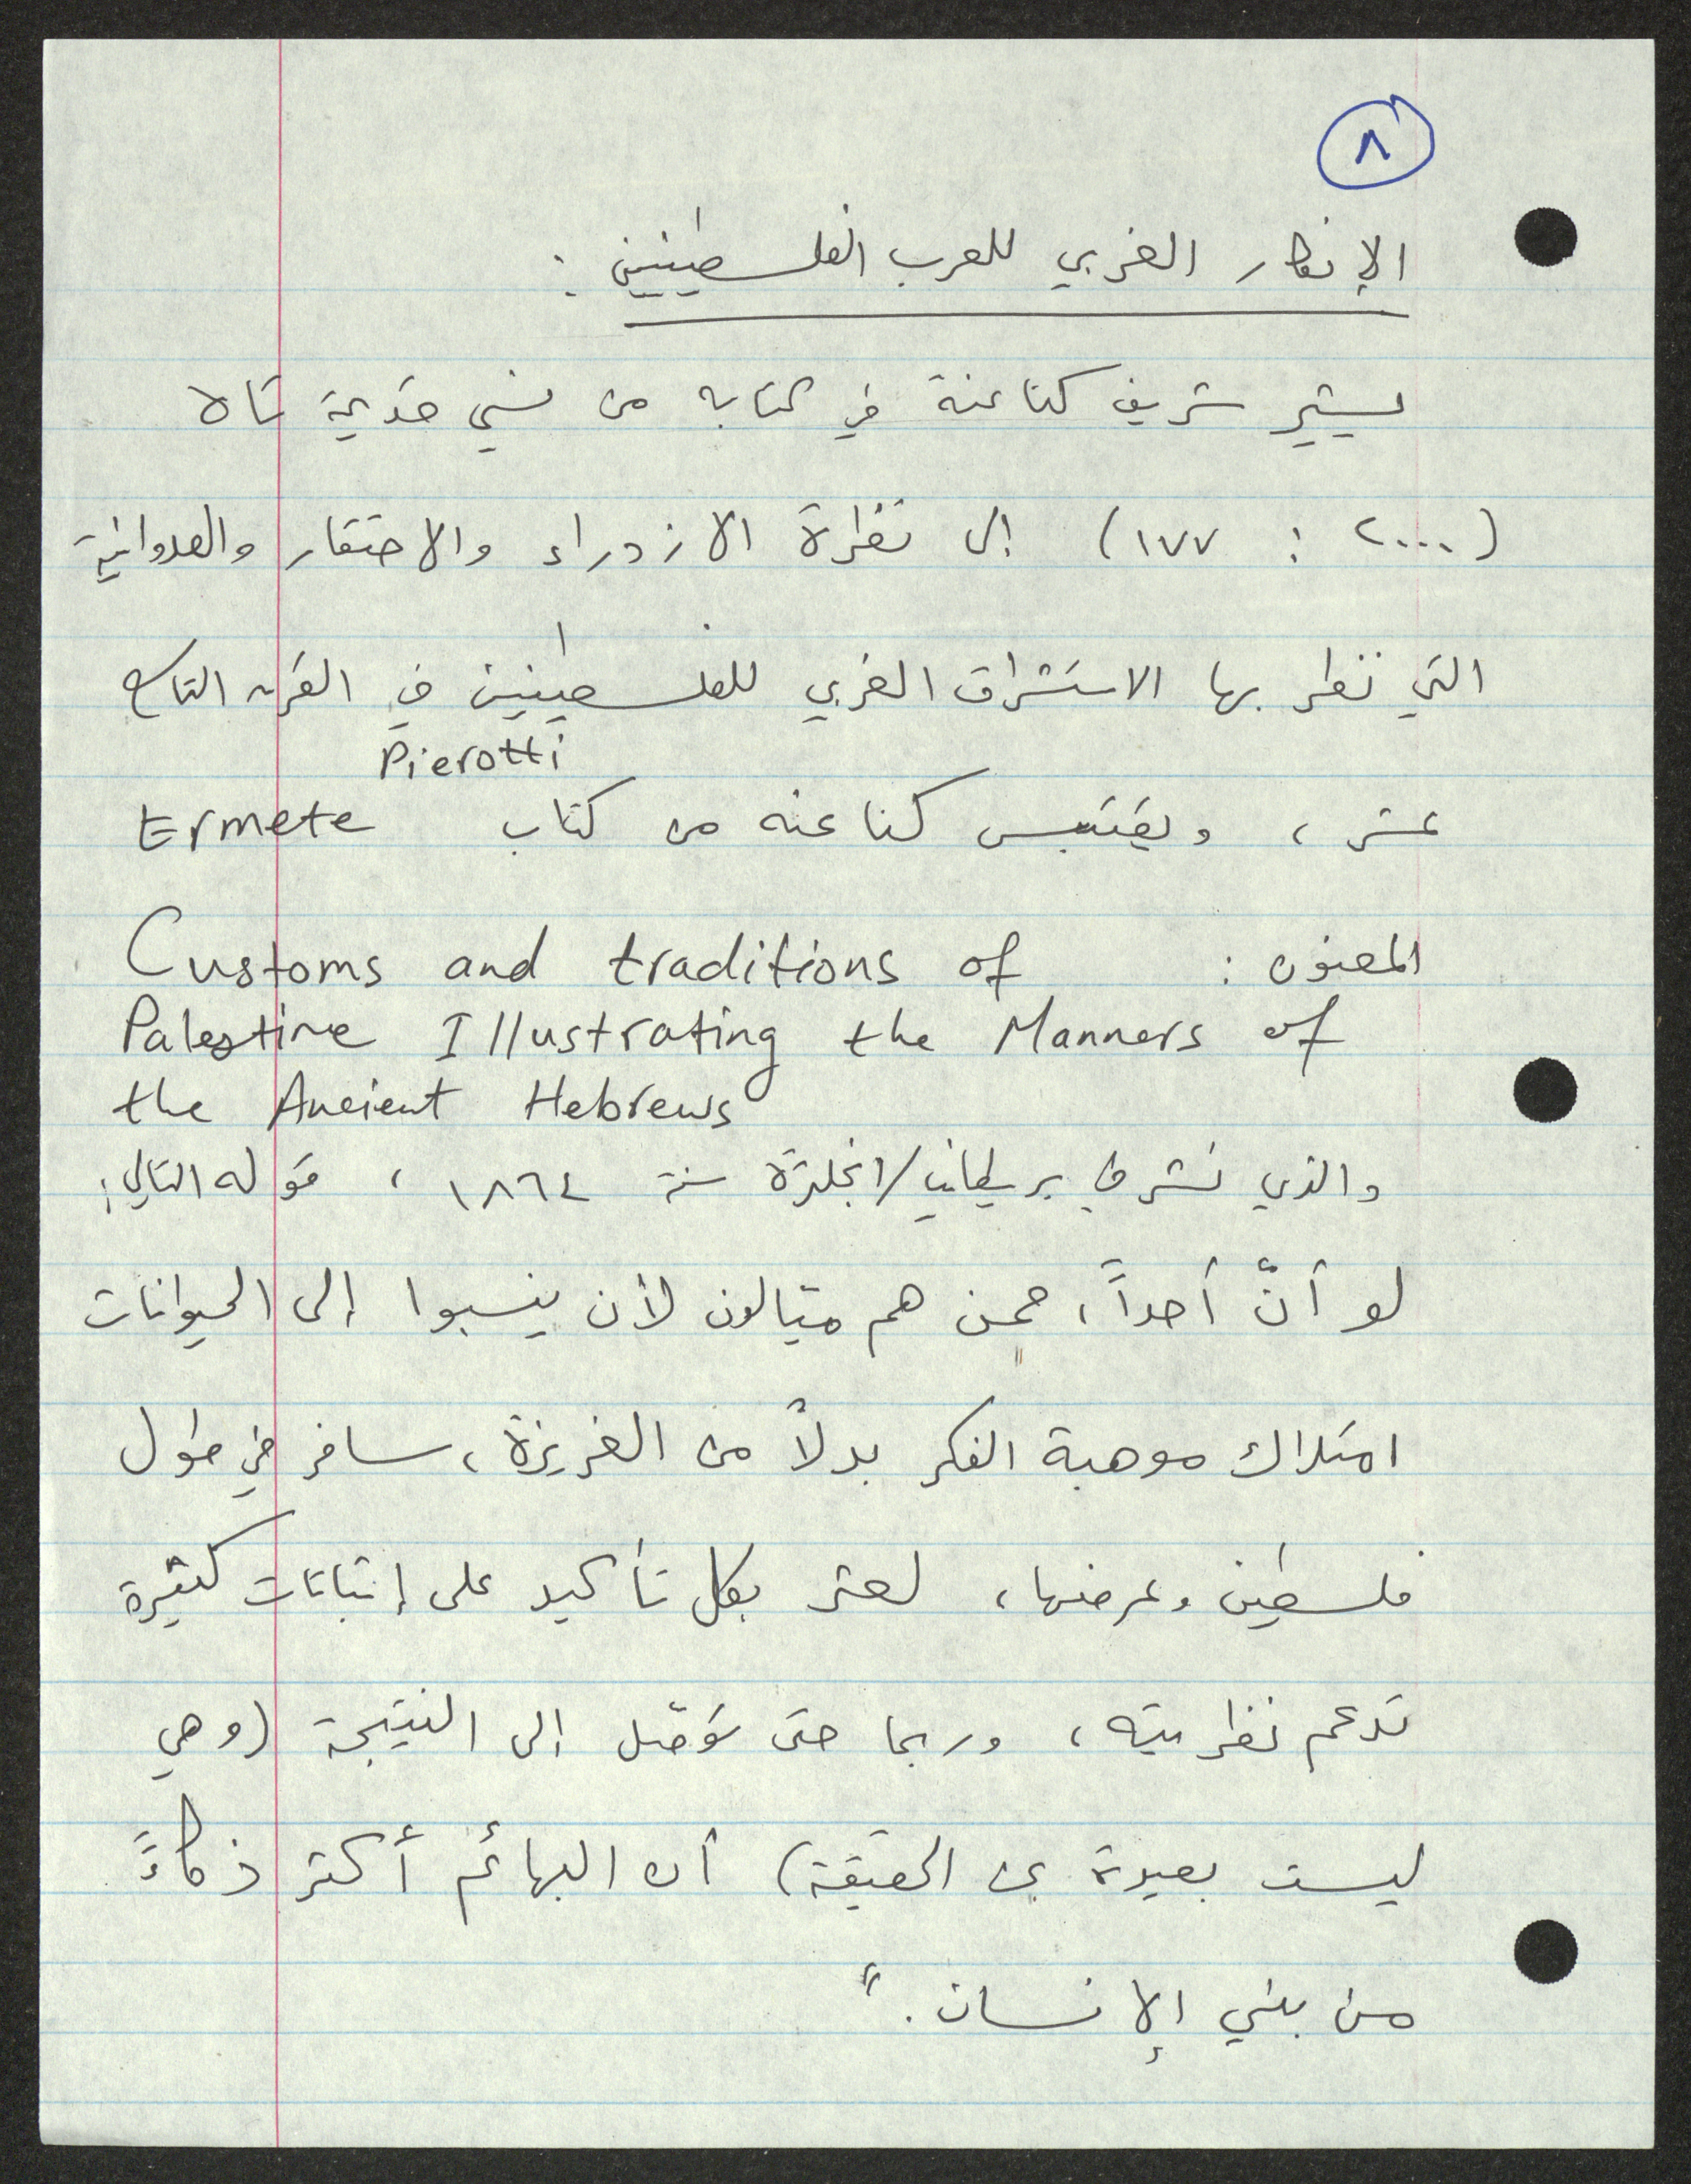 ٨
الإنكار الغربي للعرب الفلسطينيين :
يشير شريف كناعنة في كتابه من نسي قديمه تاه
(٢٠٠٠ : ١٧٧) إلى نظرة الازدراء والاحتقار والعدوانية
التي نظر بها الاستشراق الغربي للفلسطينيين في القرن التاسع
عشر ، ويقتبس كناعنه من كتاب Ermete Pierotti
المعنون : Customs and traditions of
Palestine Illustrating the Manners of
the Ancient Hebrews
والذي نشر في بريطانيا/انجلترة سنة ١٨٦٤ ، قوله التالي :
لو أنّ أحداً ، ممن هم ميالون لأن ينسبوا إلى الحيوانات
امتلاك موهبة الفكر بدلاً من الغريزة ، سافر في طول
فلسطين وعرضها ، لعثر بكل تأكيد على إثباتات كثيرة
تدعم نظريته ، وربما حتى توصّل إلى النتيجة (وهي
ليست بعيدة عن الحقيقة) أن البهائم أكثر ذكاءً
من بني الإنسان ."